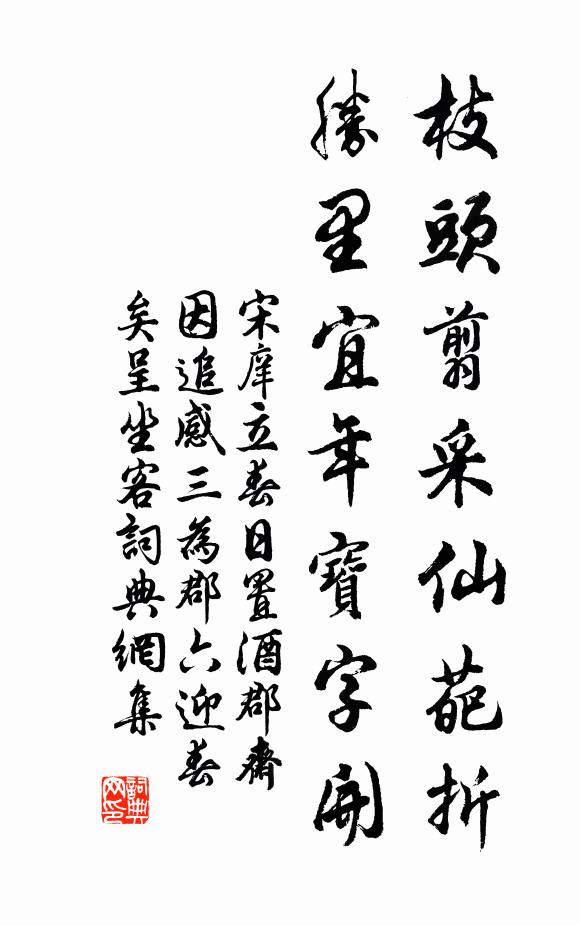 枝頭剪采仙葩折
勝里宜年寶字開
宋庠立春日置酒郡齋
因追感三為郡六迎春
矣呈坐客詞典網集
詞典网印